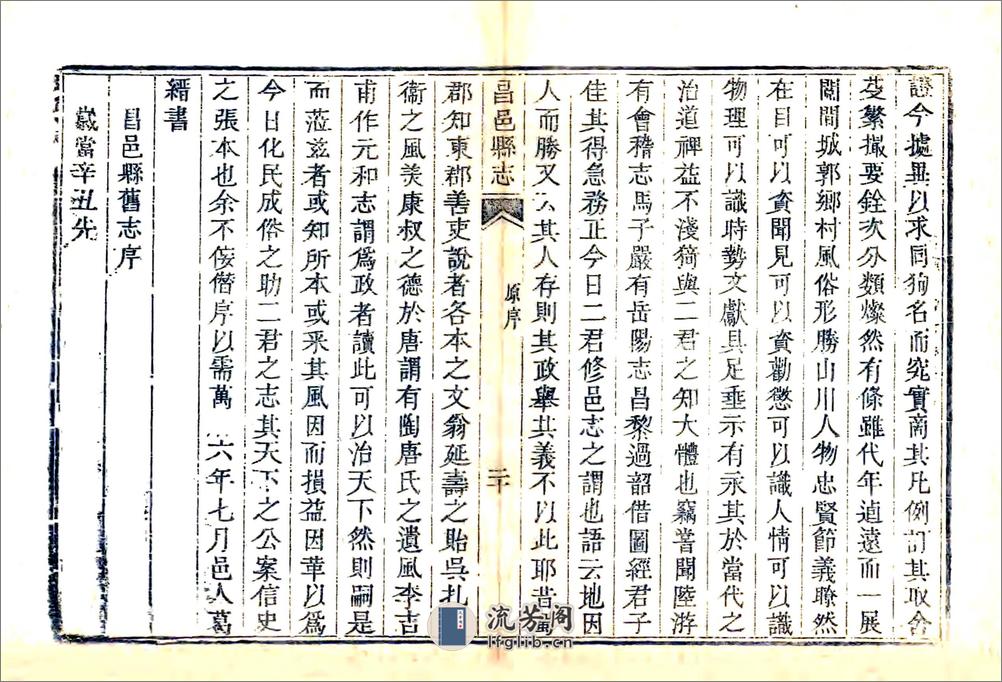 證今據異以求同狥名而究實商其凡例訂其取舍
芟繁撮要銓次分類燦然有條雖代年逈遠而一展
閱間城郭鄉村風俗形勝山川人物忠賢節義瞭然
在目可以資聞見可以資勸懲可以識人情可以識
物理可以識時勢文獻具足垂示有永其於當代之
治道裨益不淺猗與二君之知大體也竊嘗聞陸游
有會稽志馬子嚴有岳陽志昌黎過韶借圖經君子
佳其得急務正今日二君修邑志之謂也語云地因
人而勝又云其人存則其政舉其義不以此耶昔萬
昌邑縣志
原序
二十
郡知東郡善吏說者各本之文翁延壽之貽吳札
衞之風美康叔之德於唐謂有陶唐氏之遺風李吉
甫作元和志謂為政者讀此可以治天下然則嗣是
而蒞兹者或知所本或采其風因而損益因革以為
今日化民成俗之助二君之志其天下之公案信史
之張本也余不佞僭序以需萬 六年七月邑人葛
縉書
昌邑縣舊志序
歲當辛丑先
流芳阁
lfglib.cn